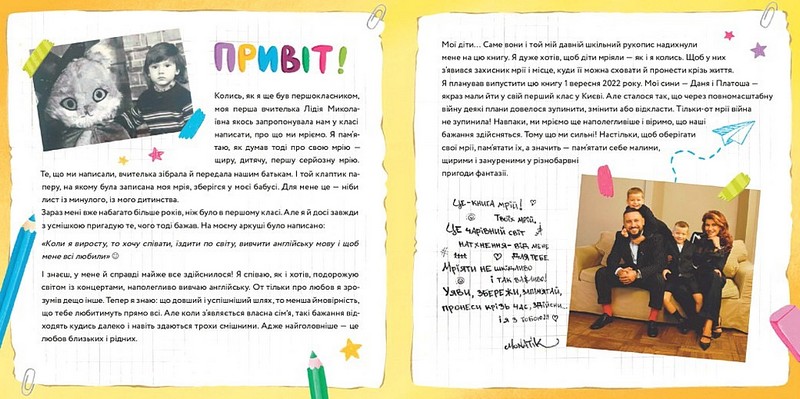 ПРИВІТ!
Колись, як я ще був першокласником,
моя перша вчителька Лідія Микола-
ївна якось запропонувала нам у класі
написати, про що ми мріємо. Я пам'я-
таю, як думав тоді про свою мрію —
щиру, дитячу, першу серйозну мрію.
Те, що ми написали, вчителька зібрала й передала нашим батькам. І той клаптик па-
перу, на якому була записана моя мрія, зберігся у моєї бабусі. Для мене це — ніби
лист із минулого, із мого дитинства.
Зараз мені вже набагато більше років, ніж було в першому класі. Але я й досі завжди
з усмішкою пригадую те, чого тоді бажав. На моєму аркуші було написано:
«Коли я виросту, то хочу співати, їздити по світу, вивчити англійську мову і щоб
мене всі любили» ☺
І знаєш, у мене й справді майже все здійснилося! Я співаю, як і хотів, подорожую
світом із концертами, наполегливо вивчаю англійську. От тільки про любов я зро-
зумів дещо інше. Тепер я знаю: що довший і успішніший шлях, то менша ймовірність,
що тебе любитимуть прямо всі. Але коли з'являється власна сім'я, такі бажання від-
ходять кудись далеко і навіть здаються трохи смішними. Адже найголовніше — це
любов близьких і рідних.
Мої діти... Саме вони і той мій давній шкільний рукопис надихнули
мене на цю книгу. Я дуже хотів, щоб діти мріяли — як і я колись. Щоб у них
з'явився захисник мрії і місце, куди її можна сховати й пронести крізь життя.
Я планував випустити цю книгу 1 вересня 2022 року. Мої сини — Даня и Платоша —
якраз мали йти у свій перший клас у Києві. Але сталося так, що через повномасштабну
війну деякі плани довелося зупинити, змінити або відкласти. Тільки-от мрії війна
не зупинила! Навпаки, ми мріємо ще наполегливіше і віримо, що наші
бажання здійсняться. Тому що ми сильні! Настільки, щоб оберігати
свої мрії, пам'ятати їх, а значить — пам'ятати себе малими,
щирими і зануреними у різнобарвні
пригоди фантазії.
Це-книга мрій!
Твоїх мрій..
Це чарівний світ
натхнення- від мене
для тебе
Мріяти не шкідливо
і так важливо!
Уяви, збережи, запам'ятай,
пронеси крізь час, здійсни...
і я з тобою!!!
MONATIK